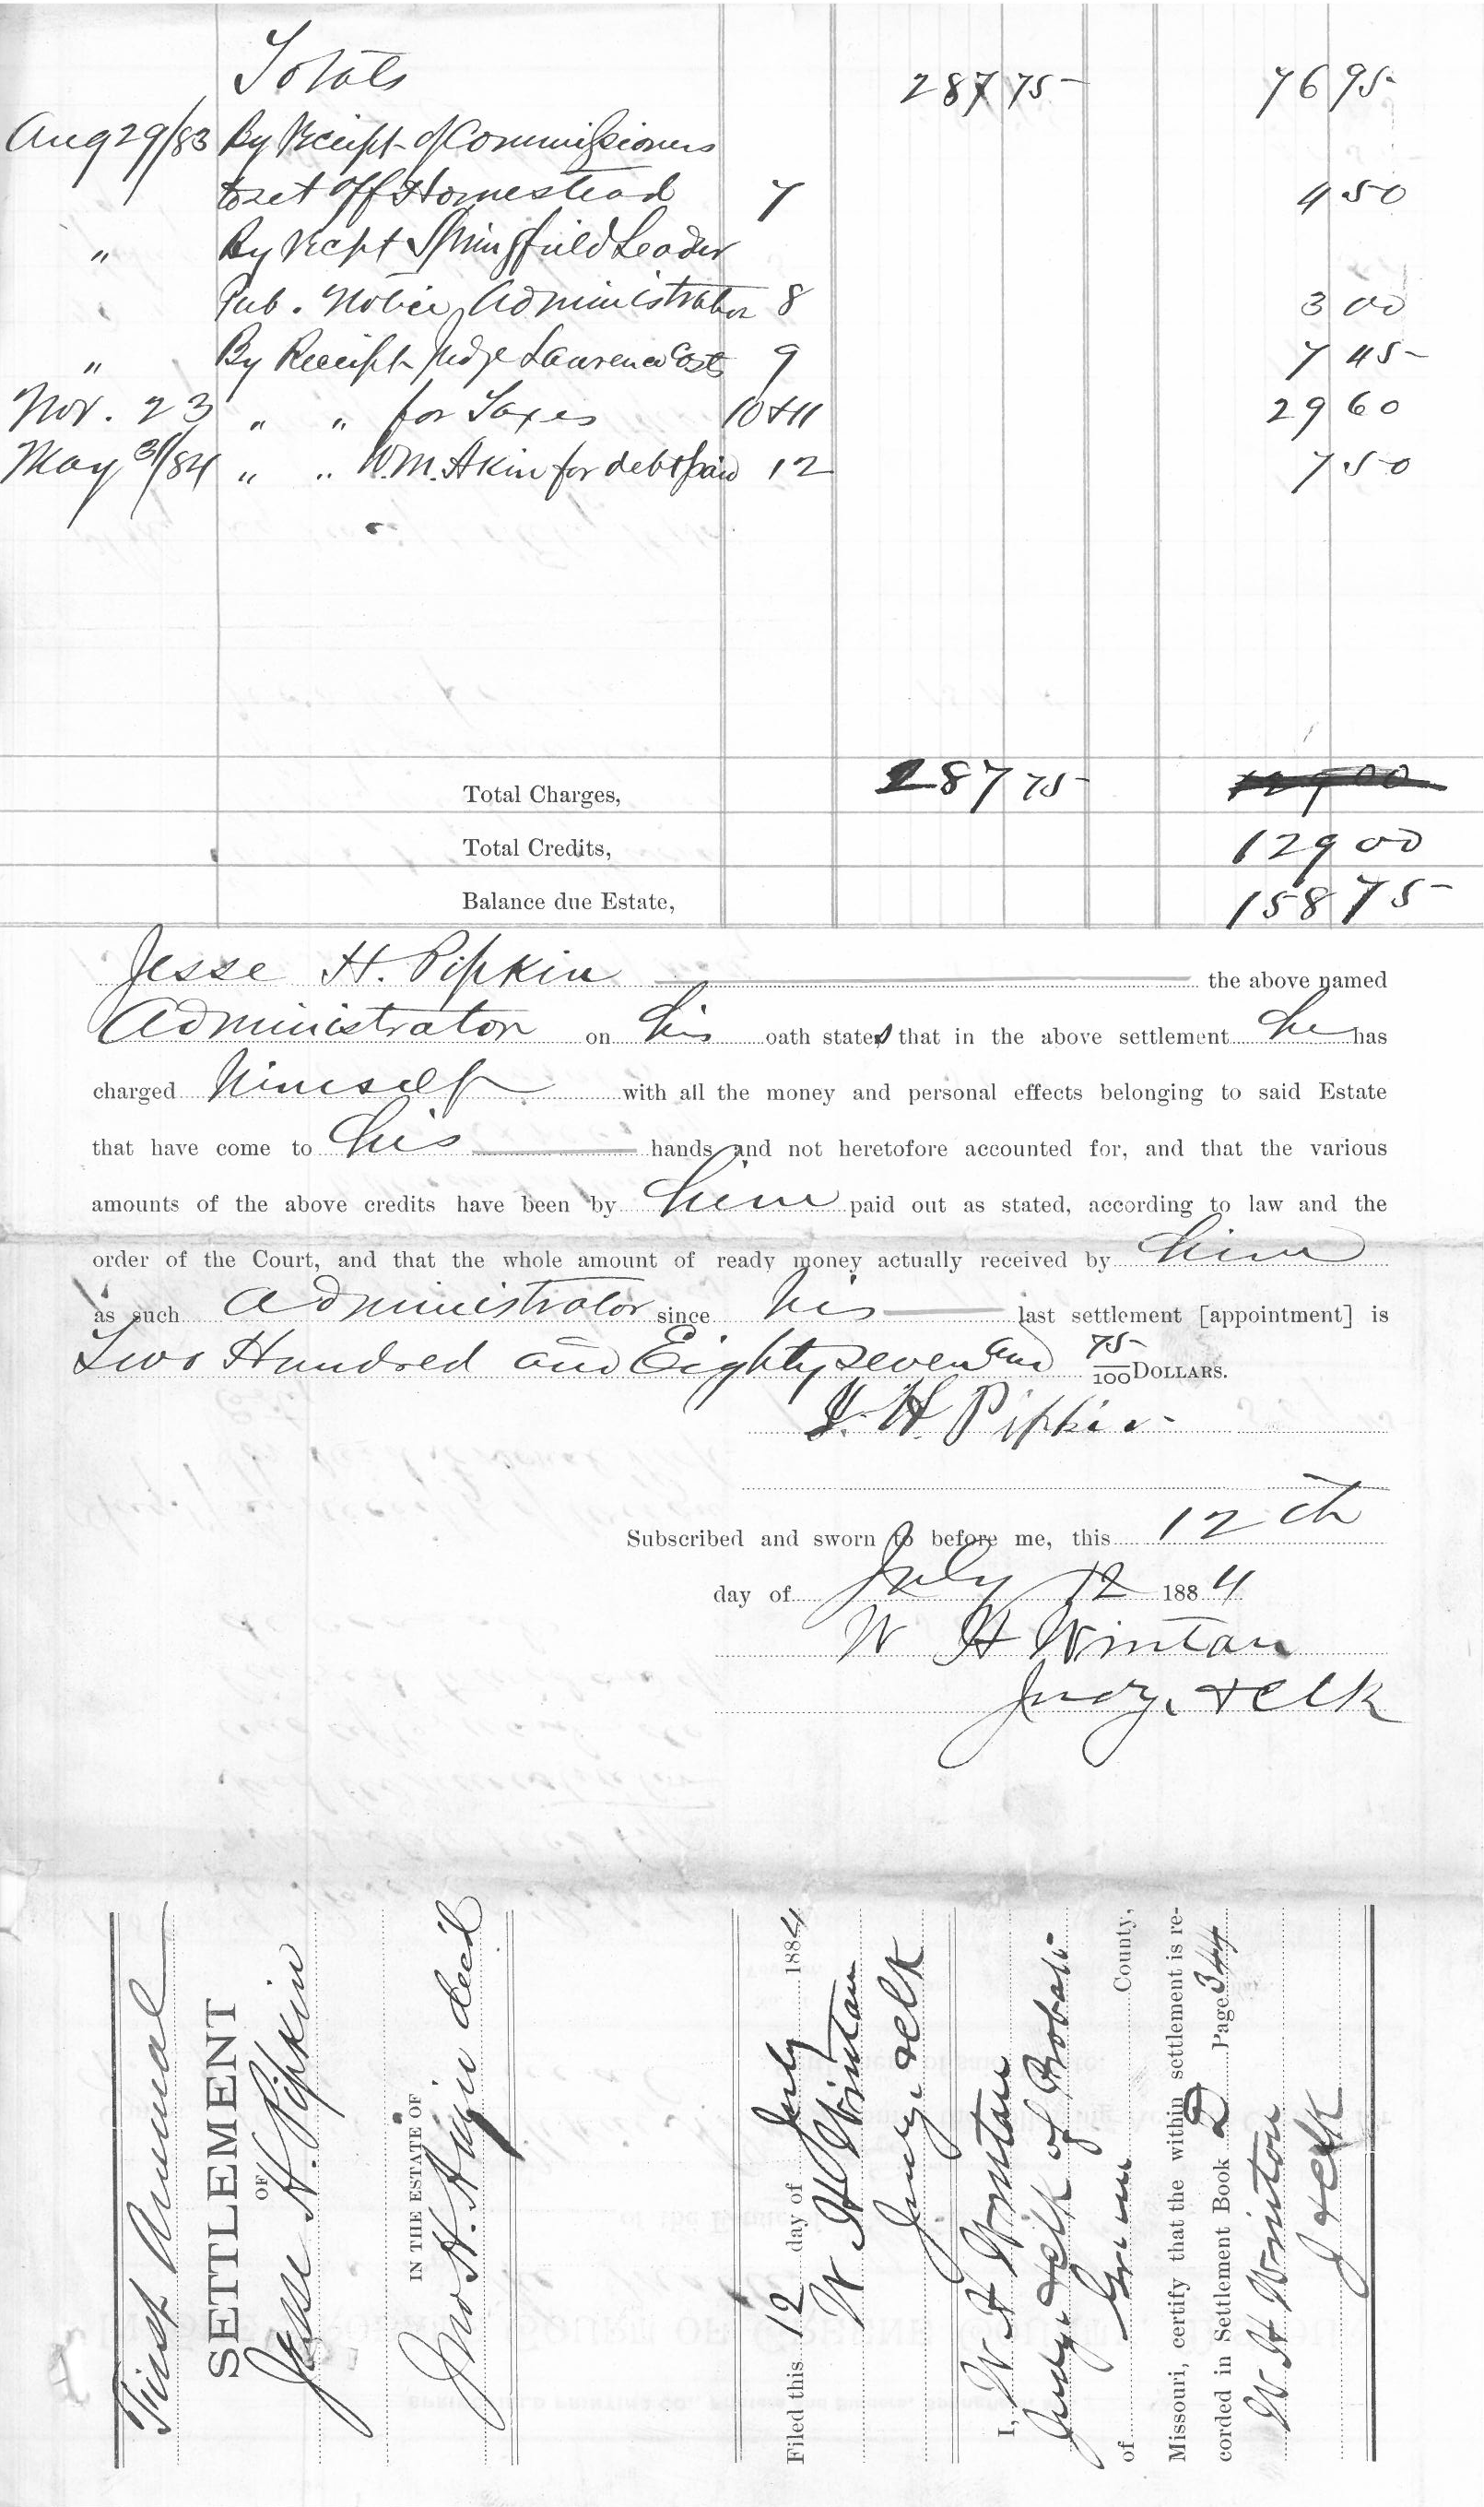 Totals 287 75 76 95
Aug 29/83 By Receipt of Commissioners
to set off Homestead 7 4 50
" By Recpt Springfield Leader
Pub. Notice, Administrator 8 3 00
" By Receipt Judge Lawrence Costs 9 7 45
Nov. 23 " " for Taxes 10+11 29 60
May 31/84 " " W.M. Akin for debt paid 12 7 50
Total Charges, 287 75 129 00
Total Credits, 129 00
Balance due Estate, 158 75
Jesse H. Pipkin the above named
Administrator on his oath states that in the above settlement he has
charged himself with all the money and personal effects belonging to said Estate
that have come to his hands and not heretofore accounted for, and that the various
amounts of the above credits have been by him paid out as stated, according to law and the
order of the Court, and that the whole amount of ready money actually received by him
as such Administrator since his last settlement [appointment] is
Two Hundred and Eighty seven and 75/100 DOLLARS.
J. H. Pipkin
Subscribed and sworn to before me, this 12th
day of July 12 1884
W H Wintan
Judge & Clk
First Annual
SETTLEMENT
OF
Jesse H. Pipkin
IN THE ESTATE OF
Jno H. Akin decd
Filed this 12 day of July 1884
W H Wintan
Judge & Clk
I, W H Wintan
Judge & Clk of Probate
of Green County,
Missouri, certify that the within settlement is re-
corded in Settlement Book D Page 344
W H Winton
J & Clk